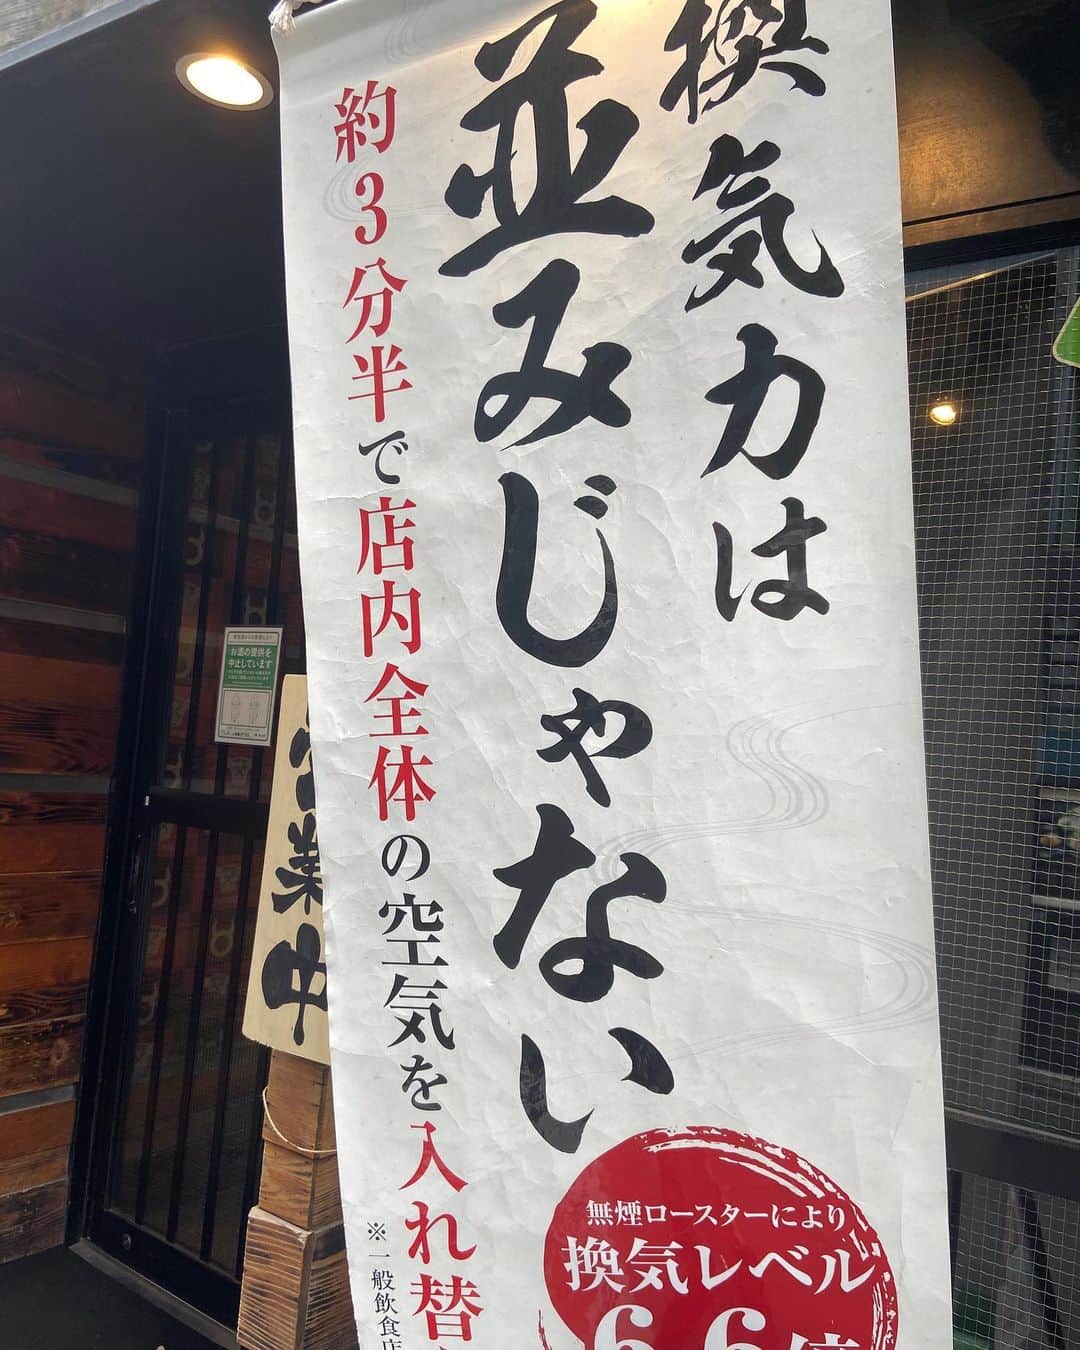 換気力は
並みじゃない
約3分半で店内全体の空気を入れ替
※一般飲食店
無煙ロースターにより
換気レベル
6.6倍
お酒の提供を
中止しています
営業中